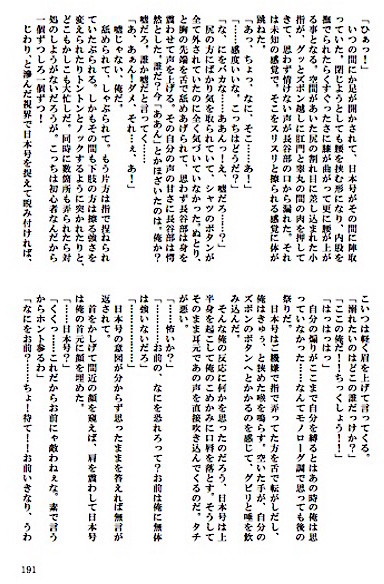 「ひゃっ！」
いつの間にか足が開かされて、日本号がその間に陣取
っていた。閉じようとしても腰を挟む形になり、内股を
撫でられたらくすぐったさに膝が曲がって更に腰が上が
る事となる。空間があいた尻の割れ目に差し込まれた小
指が、グッとズボン越しに肛門と睾丸の間の肉を押して
きて、思わず情けない声が長谷部の口から漏れた。それ
は未知の感覚で、そこをスリスリと擦られる感覚に体が
跳ねた。
「あっ、ちょっ、なに、そこ……あ！」
「……感度いいな、こっちはどうだ？」
「な、にをバカな……ああんっ！え、嘘だろ……？」
尻のあたりにばかり気を取られていて、シャツのボタンが
全て外されていたことに全く気づいていなかった。ぬとり、
と胸の先端を舌で舐めあげられて、思わず長谷部は身を
震わせて声を上げる。その自分の声の甘さに長谷部は愕
然とした。誰だ？今「ああん」とかほざいたのは。俺か？
嘘だろ、誰か嘘だと言ってく……
「あ、あぁん！ダメ、それ…ぇ、あ！」
嘘じゃない、俺だ。
舐められて、しゃぶられて、もう片方は指で捏ねられ
ていたぶられる。しかもその間も下肢の方は擦る強さを
変えられたりトントンとノックするように突かれたりと、
ともかくしこも大忙しだ。同時に数箇所も弄られたら対
処のしようがないだろうが、こっちは初心者なんだから
一個ずつしろ！一個ずつ！
じわり、と滲んだ視界で日本号を捉えて睨み付ければ、
こいつは軽く肩を上げて言ってくる。
「溺れたいのはどこの誰だっけか？」
「ここの俺だ！！ちっくしょう！！」
「はっはっはっ」
自分の煽りがここまで自分を縛るとはあの時の俺は思
っていなかった……なんてモノローグ調で思っても後の
祭りだ。
日本号はご機嫌で指で弄ってた方を舌で転がしだし、
俺はきゅう、と狭めた喉を鳴らす。空いた手が、自分の
ズボンのボタンへとかかるのを感じて、グビリと唾を飲
み込んだ。
そんな俺の反応に何かを思ったのだろう、日本号は上
半身を起こして俺のこめかみに口唇を落とす。そうして
そのまま耳元であの声を直接吹き込んでくるのだ。タチ
が悪い。
「……怖いか？」
「……お前の、なにを恐れろって？お前は俺に無体
は強いないだろ」
「…………」
日本号の意図が分からず思ったままを答えれば無言が
返されて。
首をかしげて間近の顔を窺えば、肩を震わして日本号
は俺の首元に顔を埋めた。
「……日本号？」
「くくっ……これだからお前にゃ敵わねぇな。素で言う
からホント参るわ」
「なにをお前？……ちょ！待て！！お前いきなり、うわ
191